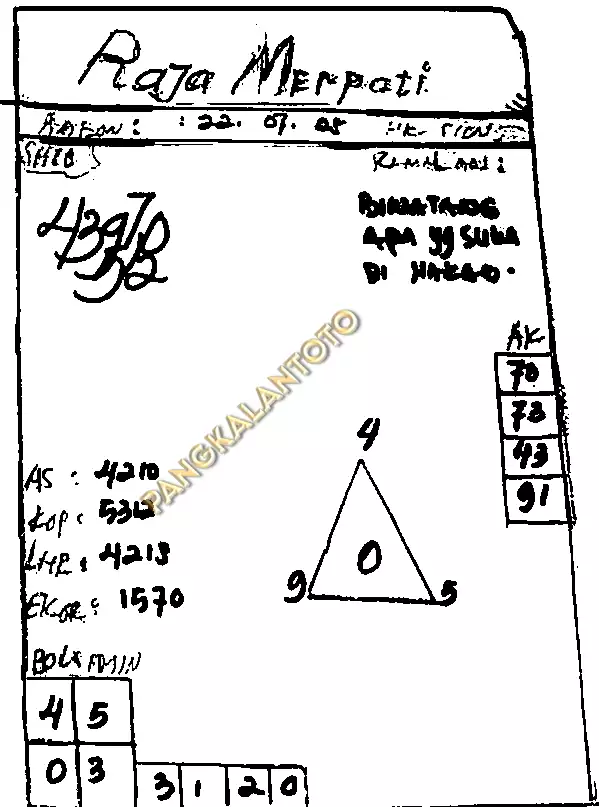 Raja Merpati
: 22. 07. 05
SHIO
RAMALAN :
BINATANG
APA yg SUKA
DI
43970
52
AK
70
73
43
91
PANGKALANTOTO
4
0
9 5
AS : 4210
KOP : 5312
: 4213
EKOR : 1570
4 5
0 3
3 1 2 0